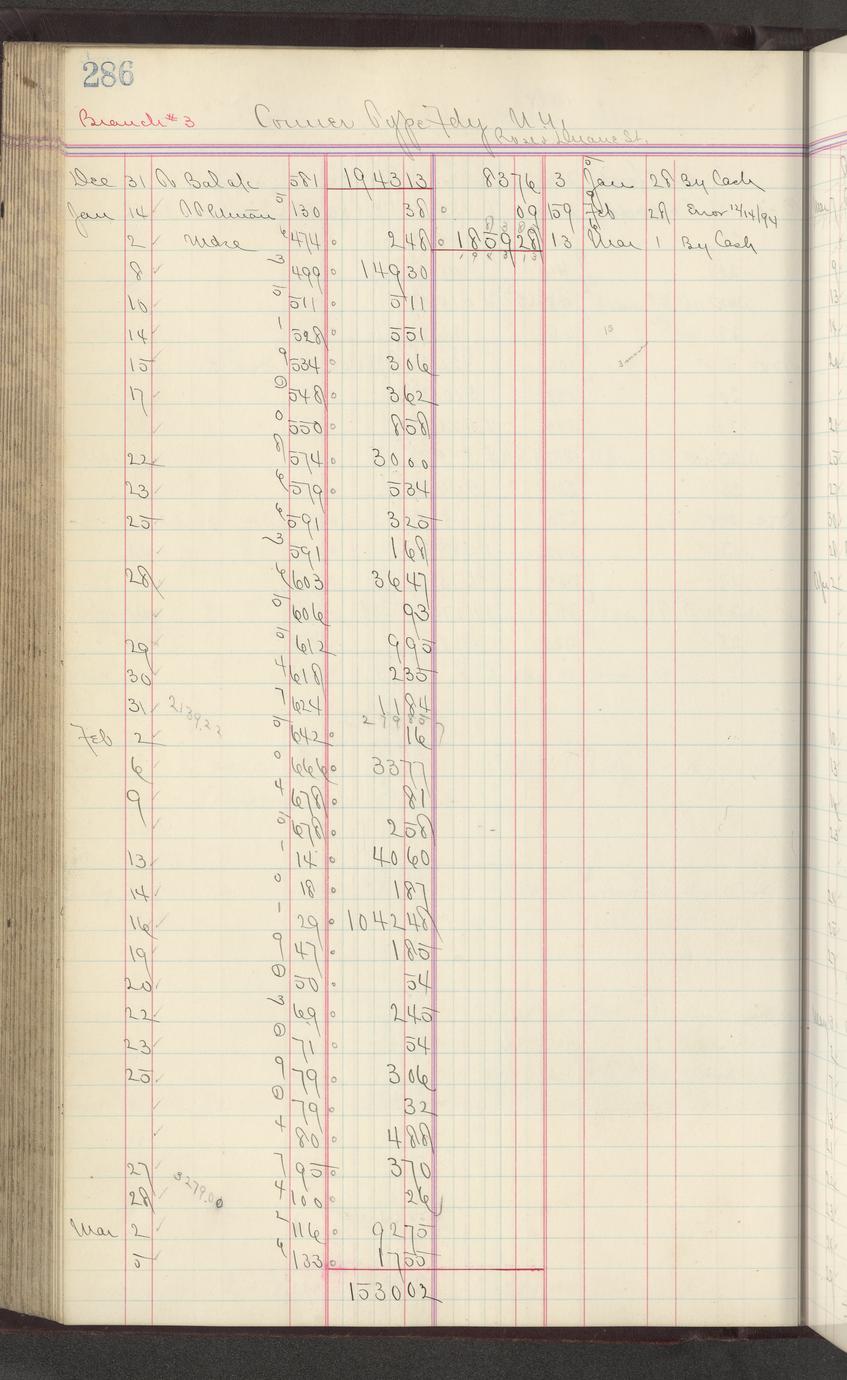 286
Branch #3 Conner Type Fdy N.Y.
Rose & Duane St.
Dec 31 To Bal ok 581 1943 13 83 76 3 Jan 28 By Cash
Jan 14 5 130 38 09 159 Feb 28 Error 12/14/94
2 Mdse 6 474 2 48 1859 28 13 Mar 1 By Cash
8 3 499 149 30
10 5 511 5 11
14 1 528 5 51
15 9 534 3 06
17 0 548 3 62
0 550 8 58
22 8 574 30 00
23 6 579 5 34
25 6 591 3 25
3 591 1 68
28 6 603 36 47
5 606 93
29 5 612 9 95
30 4 618 2 35
31 2139.22 7 624 11 84
279 85
Feb 2 5 642 16
6 0 666 33 77
9 4 678 81
5 678 2 58
13 1 14 40 60
14 0 18 1 87
16 1 29 1042 48
19 9 47 1 85
20 0 50 54
22 3 69 2 45
23 0 71 54
25 9 79 3 06
0 79 32
4 80 4 88
27 7 95 3 70
28 3279.00 4 100 26
Mar 2 2 116 92 75
5 6 133 17 55
1530 02